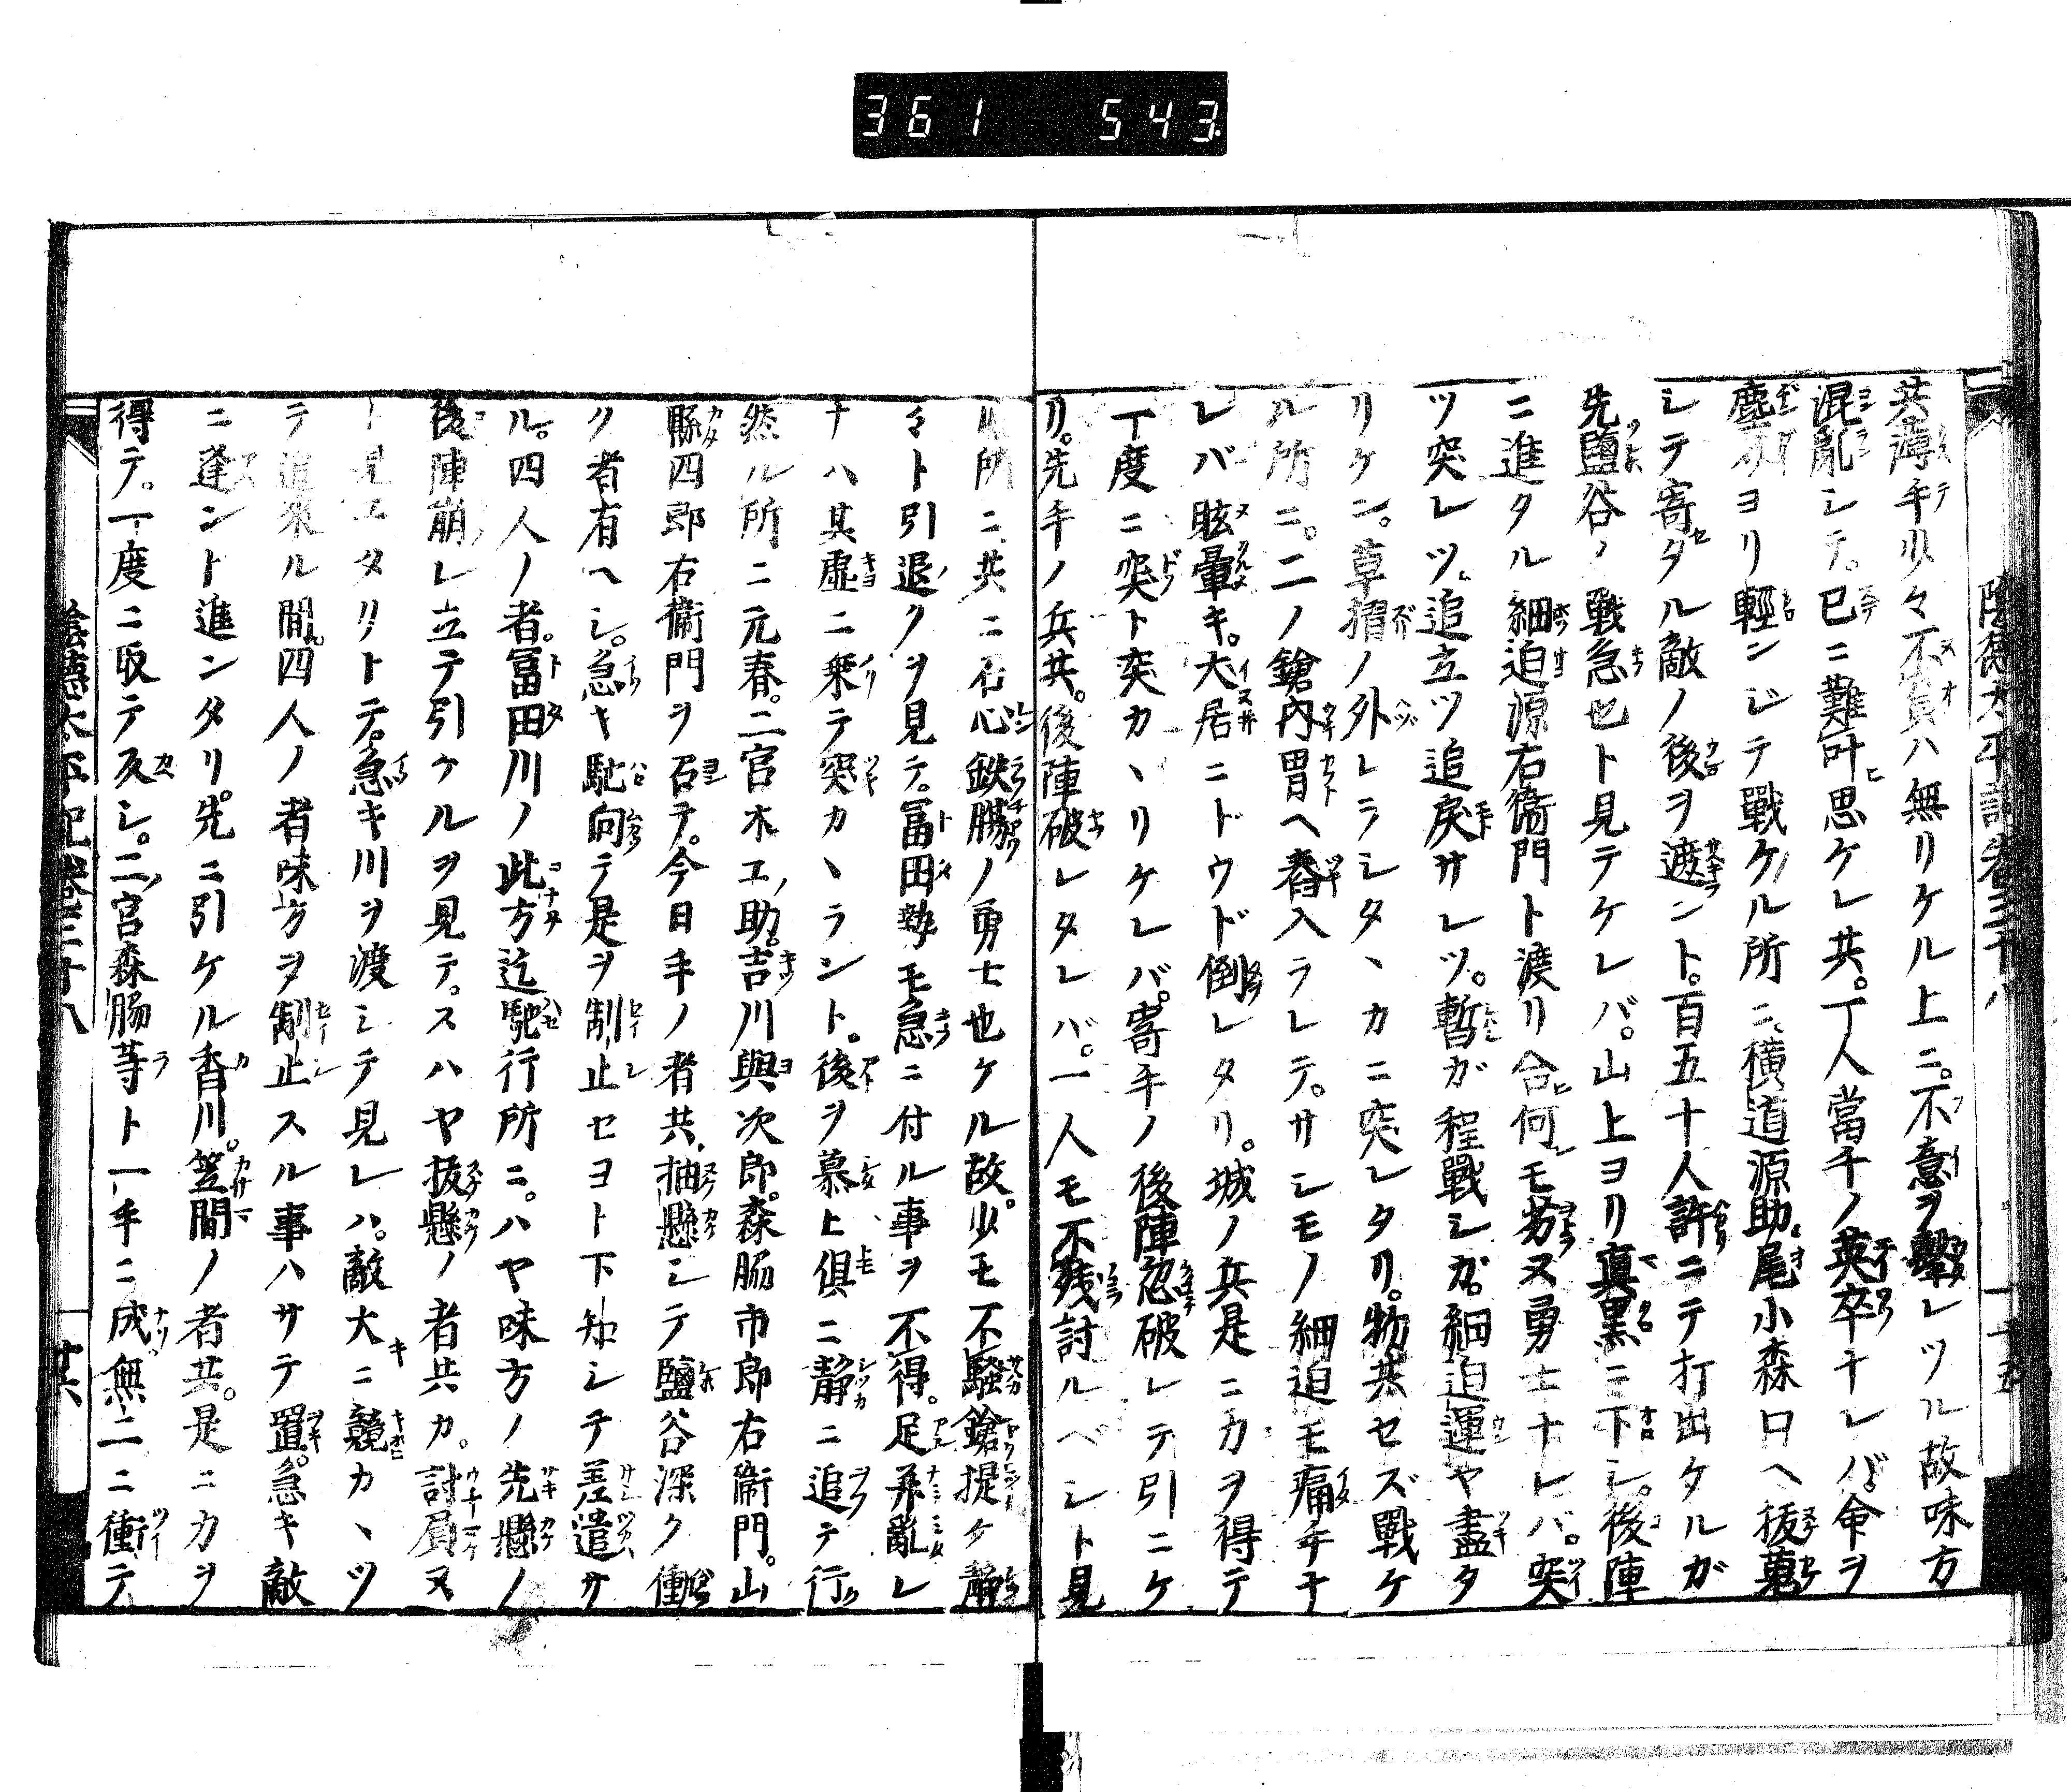 361 543
陰徳太平記巻三十八
共薄手少々不負ハ無リケル上ニ。不意ヲ撃レツル故味方
混乱シテ。已ニ難叶思ケレ共。一人當千ノ英卒ナレバ。命ヲ
塵芥ヨリ輕ンジテ戰ケル所ニ、横道源助。尾小森口ヘ抜懸
シテ寄タル敵ノ後ヲ遮ント。百五十人許ニテ打出タルガ
先鹽谷ノ戰急也ト見テケレバ。山上ヨリ真黒ニ下シ。後陣
ニ進タル細迫源右衛門ト渡リ合。何モ劣ヌ勇士ナレバ。突
ツ突レツ。追立ツ追戻サレツ。暫ガ程戰シガ。細迫運ヤ盡タ
リケン。草摺ノ外レヲシタヽカニ突レタリ。物共セズ戰ケ
ル所ニ。二ノ鎗内冑ヘ舂入ラレテ。サシモノ細迫モ痛手ナ
レバ眩暈キ。大居ニドウド倒レタリ。城ノ兵是ニ力ヲ得テ
一度ニ突ト突カヽリケレバ。寄手ノ後陣忽破レテ引ニケ
リ。先手ノ兵共。後陣破レタレバ。一人モ不残討ルベシト見
ル所ニ、共ニ石心鉄膓ノ勇士也ケル故。少モ不騒鎗提ケ静
々ト引退クヲ見テ。冨田勢モ急ニ付ル事ヲ不得。足並乱レ
ナハ其虚ニ乗テ突カヽラント。後ヲ慕上倶ニ静ニ追テ行
然ル所ニ元春。二宮木工助。吉川與次郎。森脇市郎右衛門。山
縣四郎右衛門ヲ召テ。今日手ノ者共、抽懸シテ鹽谷深ク働
ク者有ヘシ。急キ馳向テ是ヲ制止セヨト下知シテ差遣サ
ル。四人ノ者。冨田川ノ此方迄馳行所ニ。ハヤ味方ノ先懸ノ
後陣崩レ立テ引ケルヲ見テ。スハヤ抜懸ノ者共カ。討屓ヌ
ト見エタリトテ。急キ川ヲ渡シテ見レハ。敵大ニ競カヽツ
テ追来ル間。四人ノ者味方ヲ制止スル事ハサテ置。急キ敵
ニ逢ント進ンタリ。先ニ引ケル香川。笠間ノ者共。是ニカヲ
得テ。一度ニ取テ返シ。二宮森脇等ト一手ニ成。無二ニ衝テ
陰徳太平記巻三十八
廿六